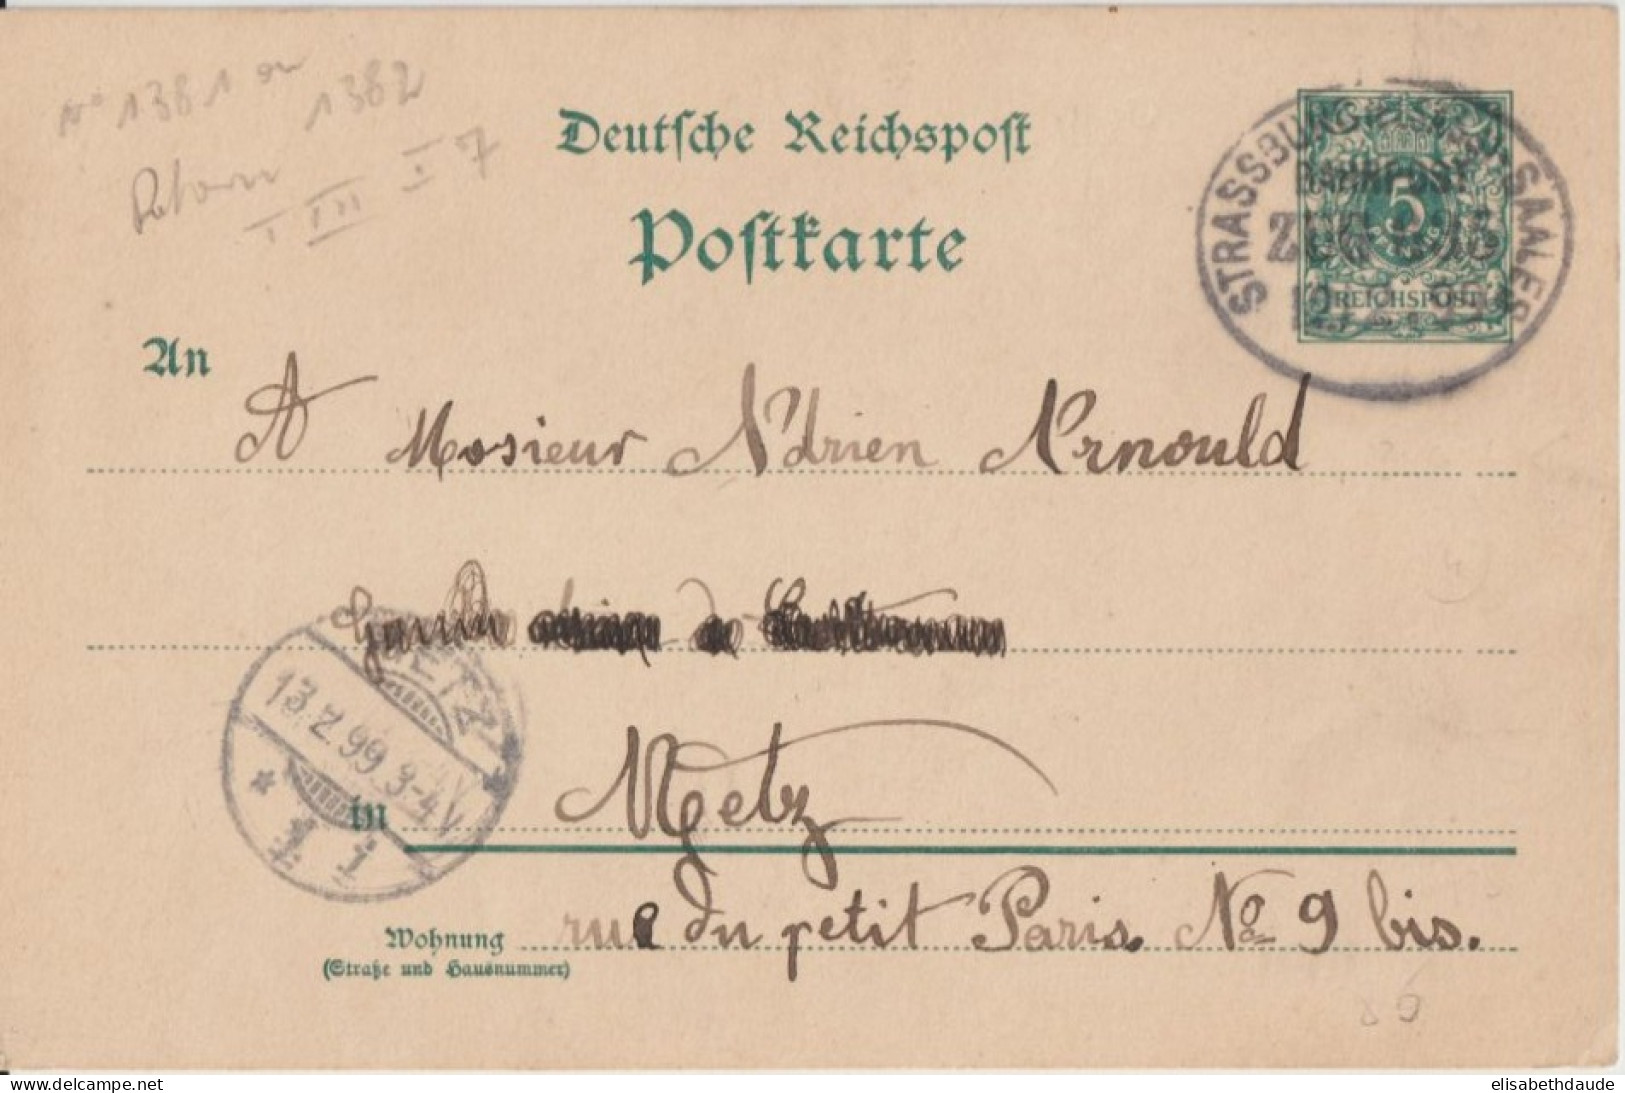 No 1381 ou
1382
Retour
I III I 7
Deutsche Reichspost
Postkarte
STRASSBURG SAALES
BAHNPOST
ZUG
5
PFENNIG
REICHSPOST
An
A Mosieur Adrien Arnould
METZ
13.7.99.3-4V
* 1 1
in Metz
Wohnung rue du petit Paris. No 9 bis.
(Straße und Hausnummer)
delcampe.net
elisabethdaude